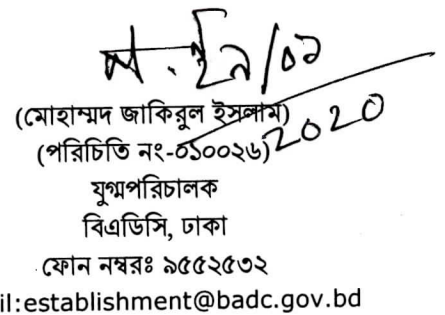 (মোহাম্মদ জাকিরুল ইসলাম)
2020
(পরিচিতি নং-০১০০২৬)
যুগ্মপরিচালক
বিএডিসি, ঢাকা
ফোন নম্বরঃ ৯৫৫২৫৩২
il:establishment@badc.gov.bd